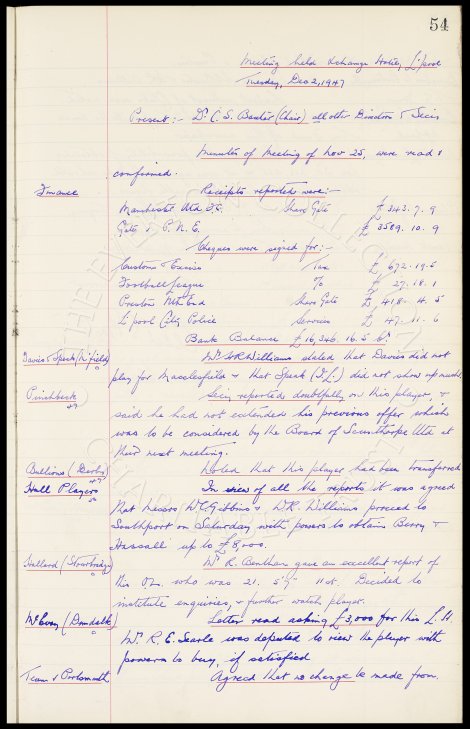 54
Meeting held Exchange Hotel, L'pool
Tuesday, Dec 2, 1947
Present:- Dr. C. S. Baxter (Chair) all other Directors & Secy
Minutes of Meeting of Nov 25, were read &
confirmed.
Finance Receipts reported were:-
Manchester Utd F.C. Share Gate £ 343. 7. 9
Gate v P. N. E. £ 3589. 10. 9
Cheques were signed for:-
Customs & Excise Tax £ 672. 19. 5
Football League % £ 27. 18. 1
Preston Nth End Share Gate £ 418. 4. 5
L'pool City Police Services £ 47. 11. 6
Bank Balance £ 16,346. 16. 5
Davies & Speak (M'field) Mr. W.R. Williams stated that Davies did not
play for Macclesfield & that Speak (I.L.) did not show up much.
Pinchbeck Secy reported doubtfully on this player, &
said he had not extended his previous offer which
was to be considered by the Board of Scunthorpe Utd at
their next meeting.
Bullions (Derby) Noted that this player had been transferred
Hall Players In view of all the reports it was agreed
that Messrs W.C. Gibbins & W.R. Williams proceed to
Southport on Saturday with powers to obtain Berry &
Hassall up to £8,000.
Hallard (Stourbridge) Mr. R. Bentham gave an excellent report of
this who was 21. 5'9½" 11st. Decided to
institute enquiries, & further watch player.
McEvoy (Dundalk) Letter read asking £3,000 for this L.H.
Mr. R. E. Searle was deputed to view the player with
powers to buy, if satisfied
Team v Portsmouth Agreed that no change be made from